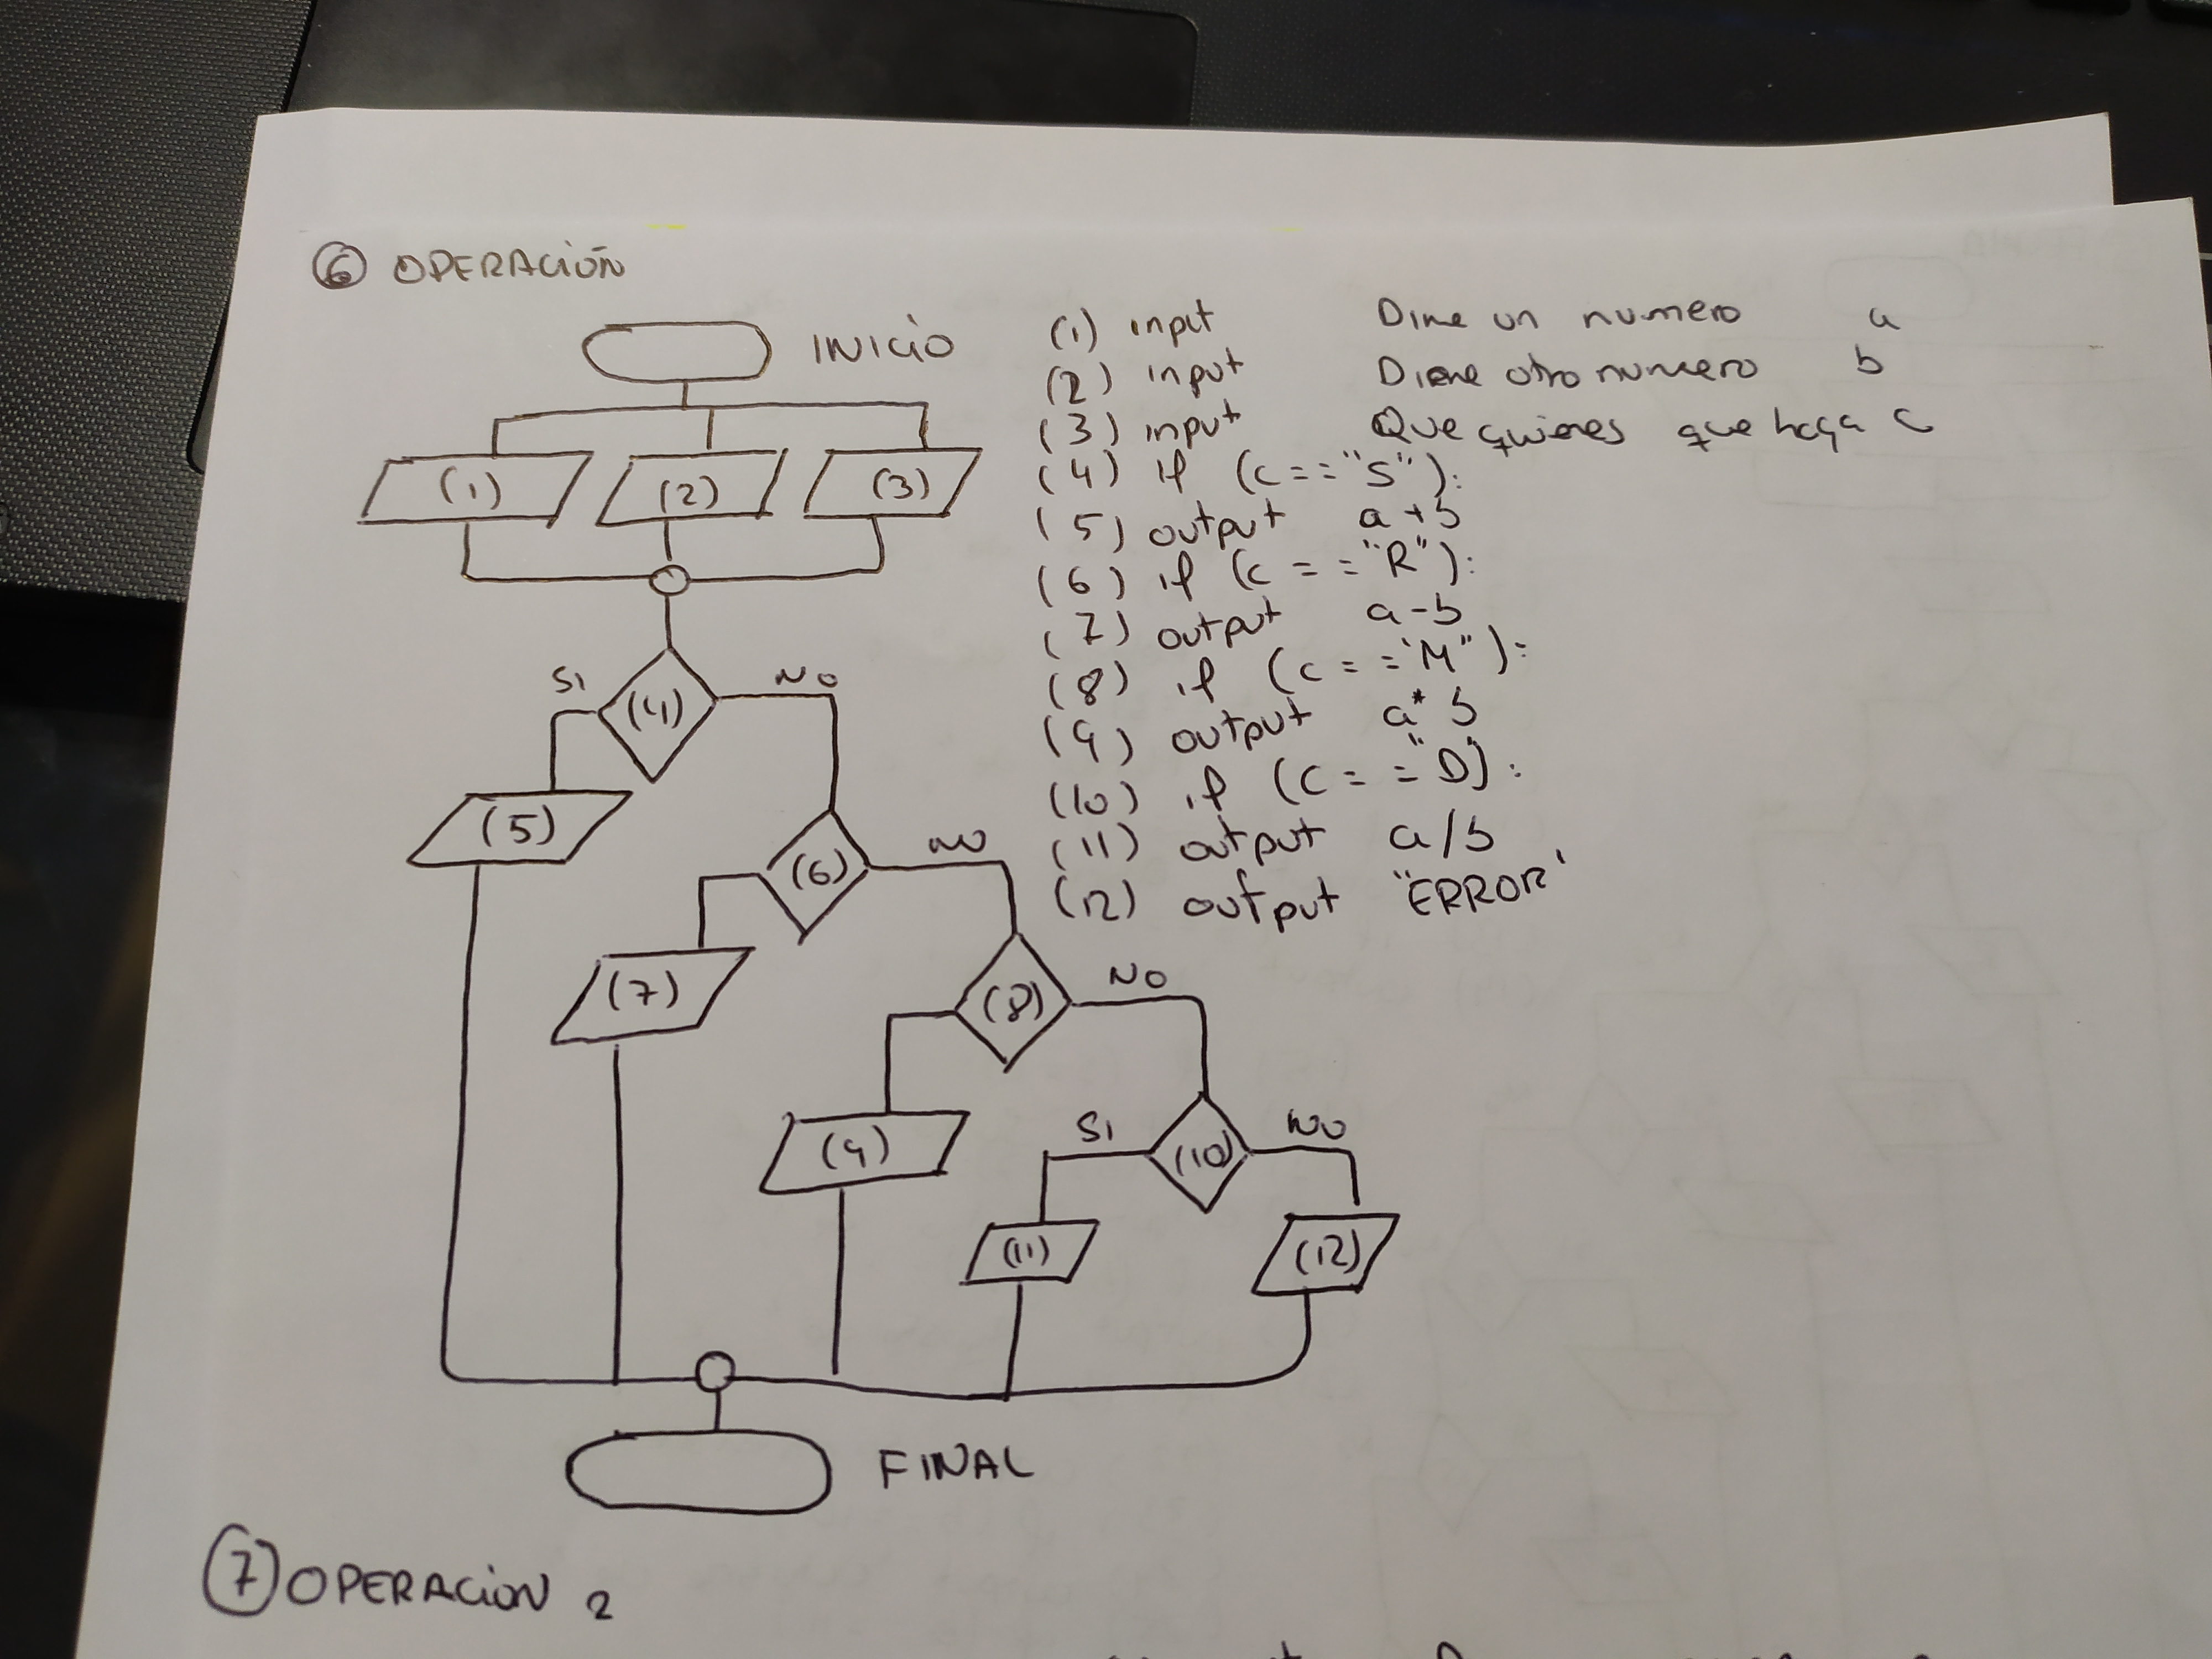 ⑥ OPERACIÓN
INICIO
(1) (2) (3)
SI (4) NO
(5)
(6) NO
(7)
(8) NO
(9)
SI (10) NO
(11) (12)
FINAL
(1) input Dime un numero a
(2) input Dime otro numero b
(3) input Que quieres que haga c
(4) if (c == "S"):
(5) output a + b
(6) if (c == "R"):
(7) output a - b
(8) if (c == "M"):
(9) output a * b
(10) if (c == "D"):
(11) output a / b
(12) output "ERROR"
⑦ OPERACION 2